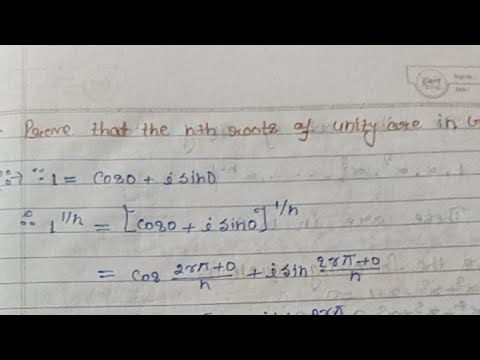 Prove that the nth roots of unity are in G
∵ 1 = cos0 + i sin0
∴ 1^{1/n} = [cos0 + i sin0]^{1/n}
= cos \frac{2rπ+0}{n} + i sin \frac{2rπ+0}{n}